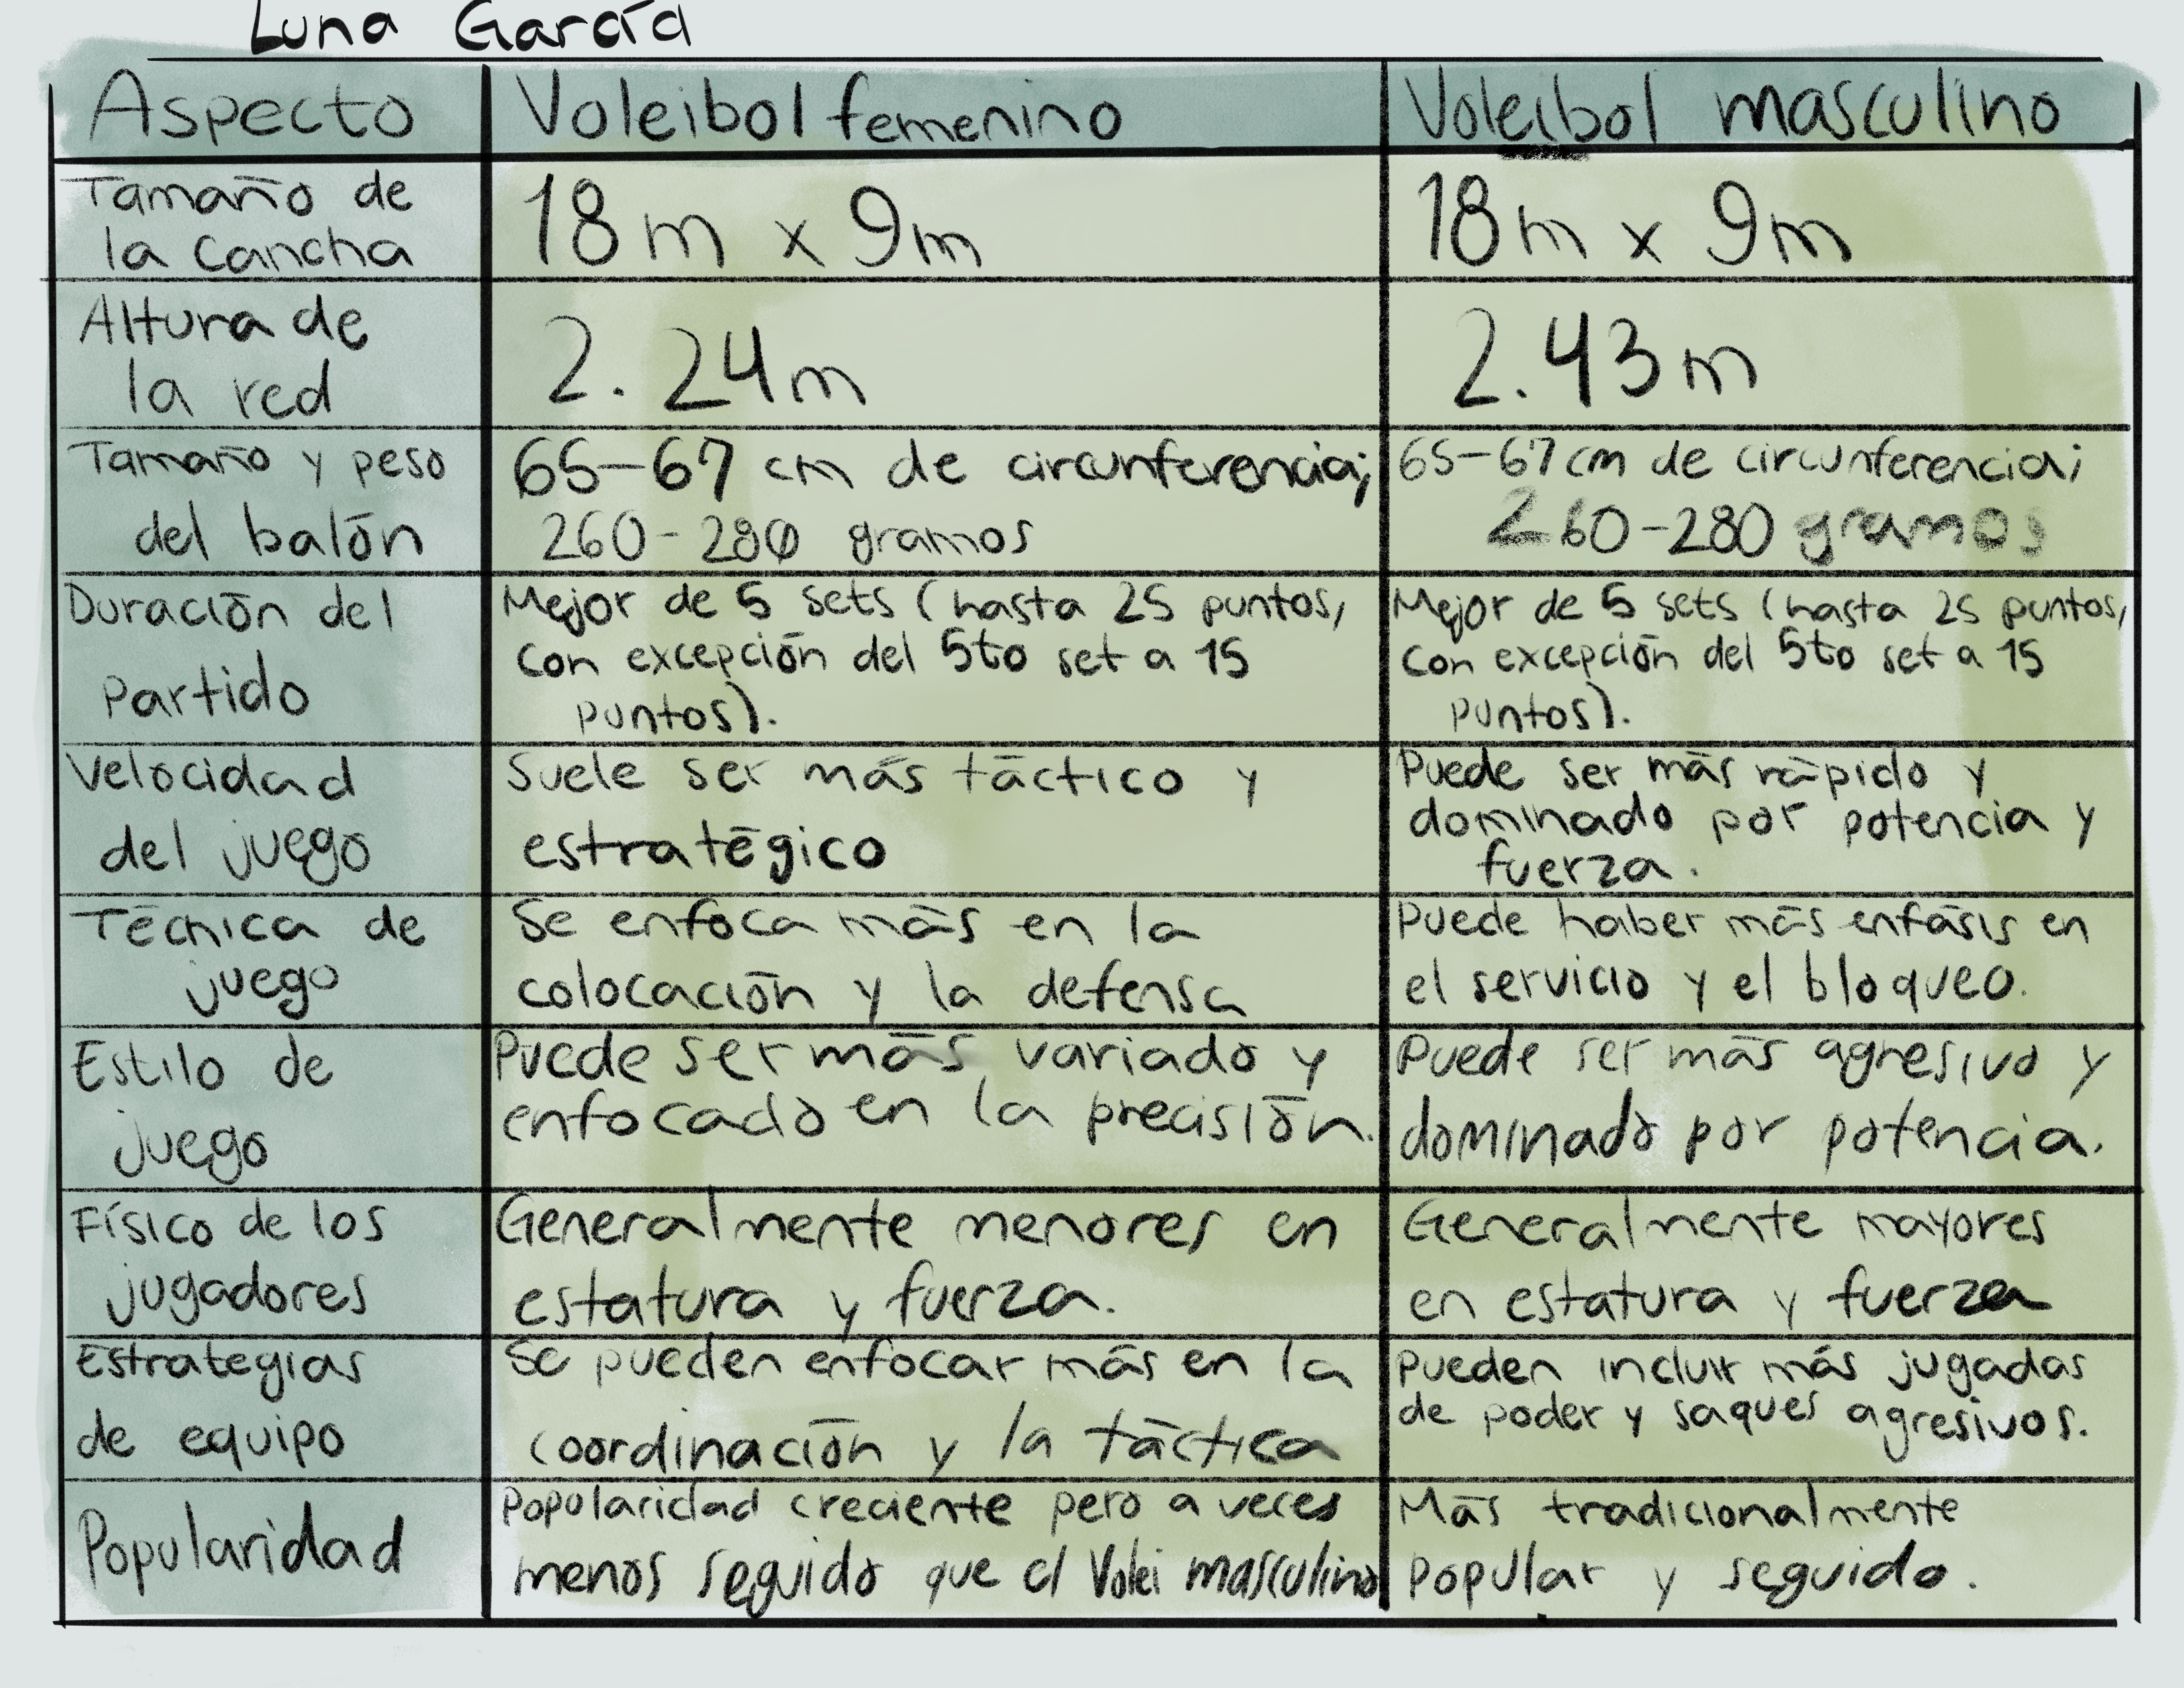 Luna García
Aspecto
Voleibol femenino
Voleibol masculino
Tamaño de
la Cancha
18m x 9m
18m x 9m
Altura de
la red
2.24m
2.43m
Tamaño y peso
del balón
65-67 cm de circunferencia;
260-280 gramos
65-67cm de circunferencia;
260-280 gramos
Duración del
Partido
Mejor de 5 sets (hasta 25 puntos,
con excepción del 5to set a 15
puntos).
Mejor de 5 sets (hasta 25 puntos,
con excepción del 5to set a 15
puntos).
Velocidad
del juego
Suele ser más táctico y
estratégico
Puede ser más rápido y
dominado por potencia y
fuerza.
Técnica de
juego
Se enfoca más en la
colocación y la defensa
Puede haber más enfásis en
el servicio y el bloqueo.
Estilo de
juego
Puede ser más variado y
enfocado en la precisión.
Puede ser más agresivo y
dominado por potencia.
Físico de los
jugadores
Generalmente menores en
estatura y fuerza.
Generalmente mayores
en estatura y fuerza
Estrategias
de equipo
Se pueden enfocar más en la
coordinación y la táctica
Pueden incluir más jugadas
de poder y saques agresivos.
Popularidad
Popularidad creciente pero a veces
menos seguido que el Volei masculino
Más tradicionalmente
popular y seguido.